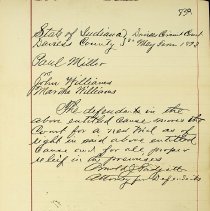 State of Indiana } Daviess Circuit Court
Daviess County } SS May Term 1923
Paul Miller
vs
John Williams
Martha Williams
The defendants in the
above entitled cause moves the
Court for a new trial as of
right in said above entitled
cause and for all proper
relief in the premises
Attorney for Defendants